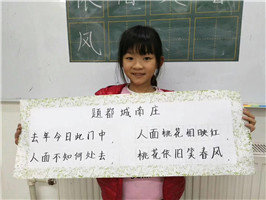 春
风
题都城南庄
去年今日此门中，人面桃花相映红，
人面不知何处去，桃花依旧笑春风。